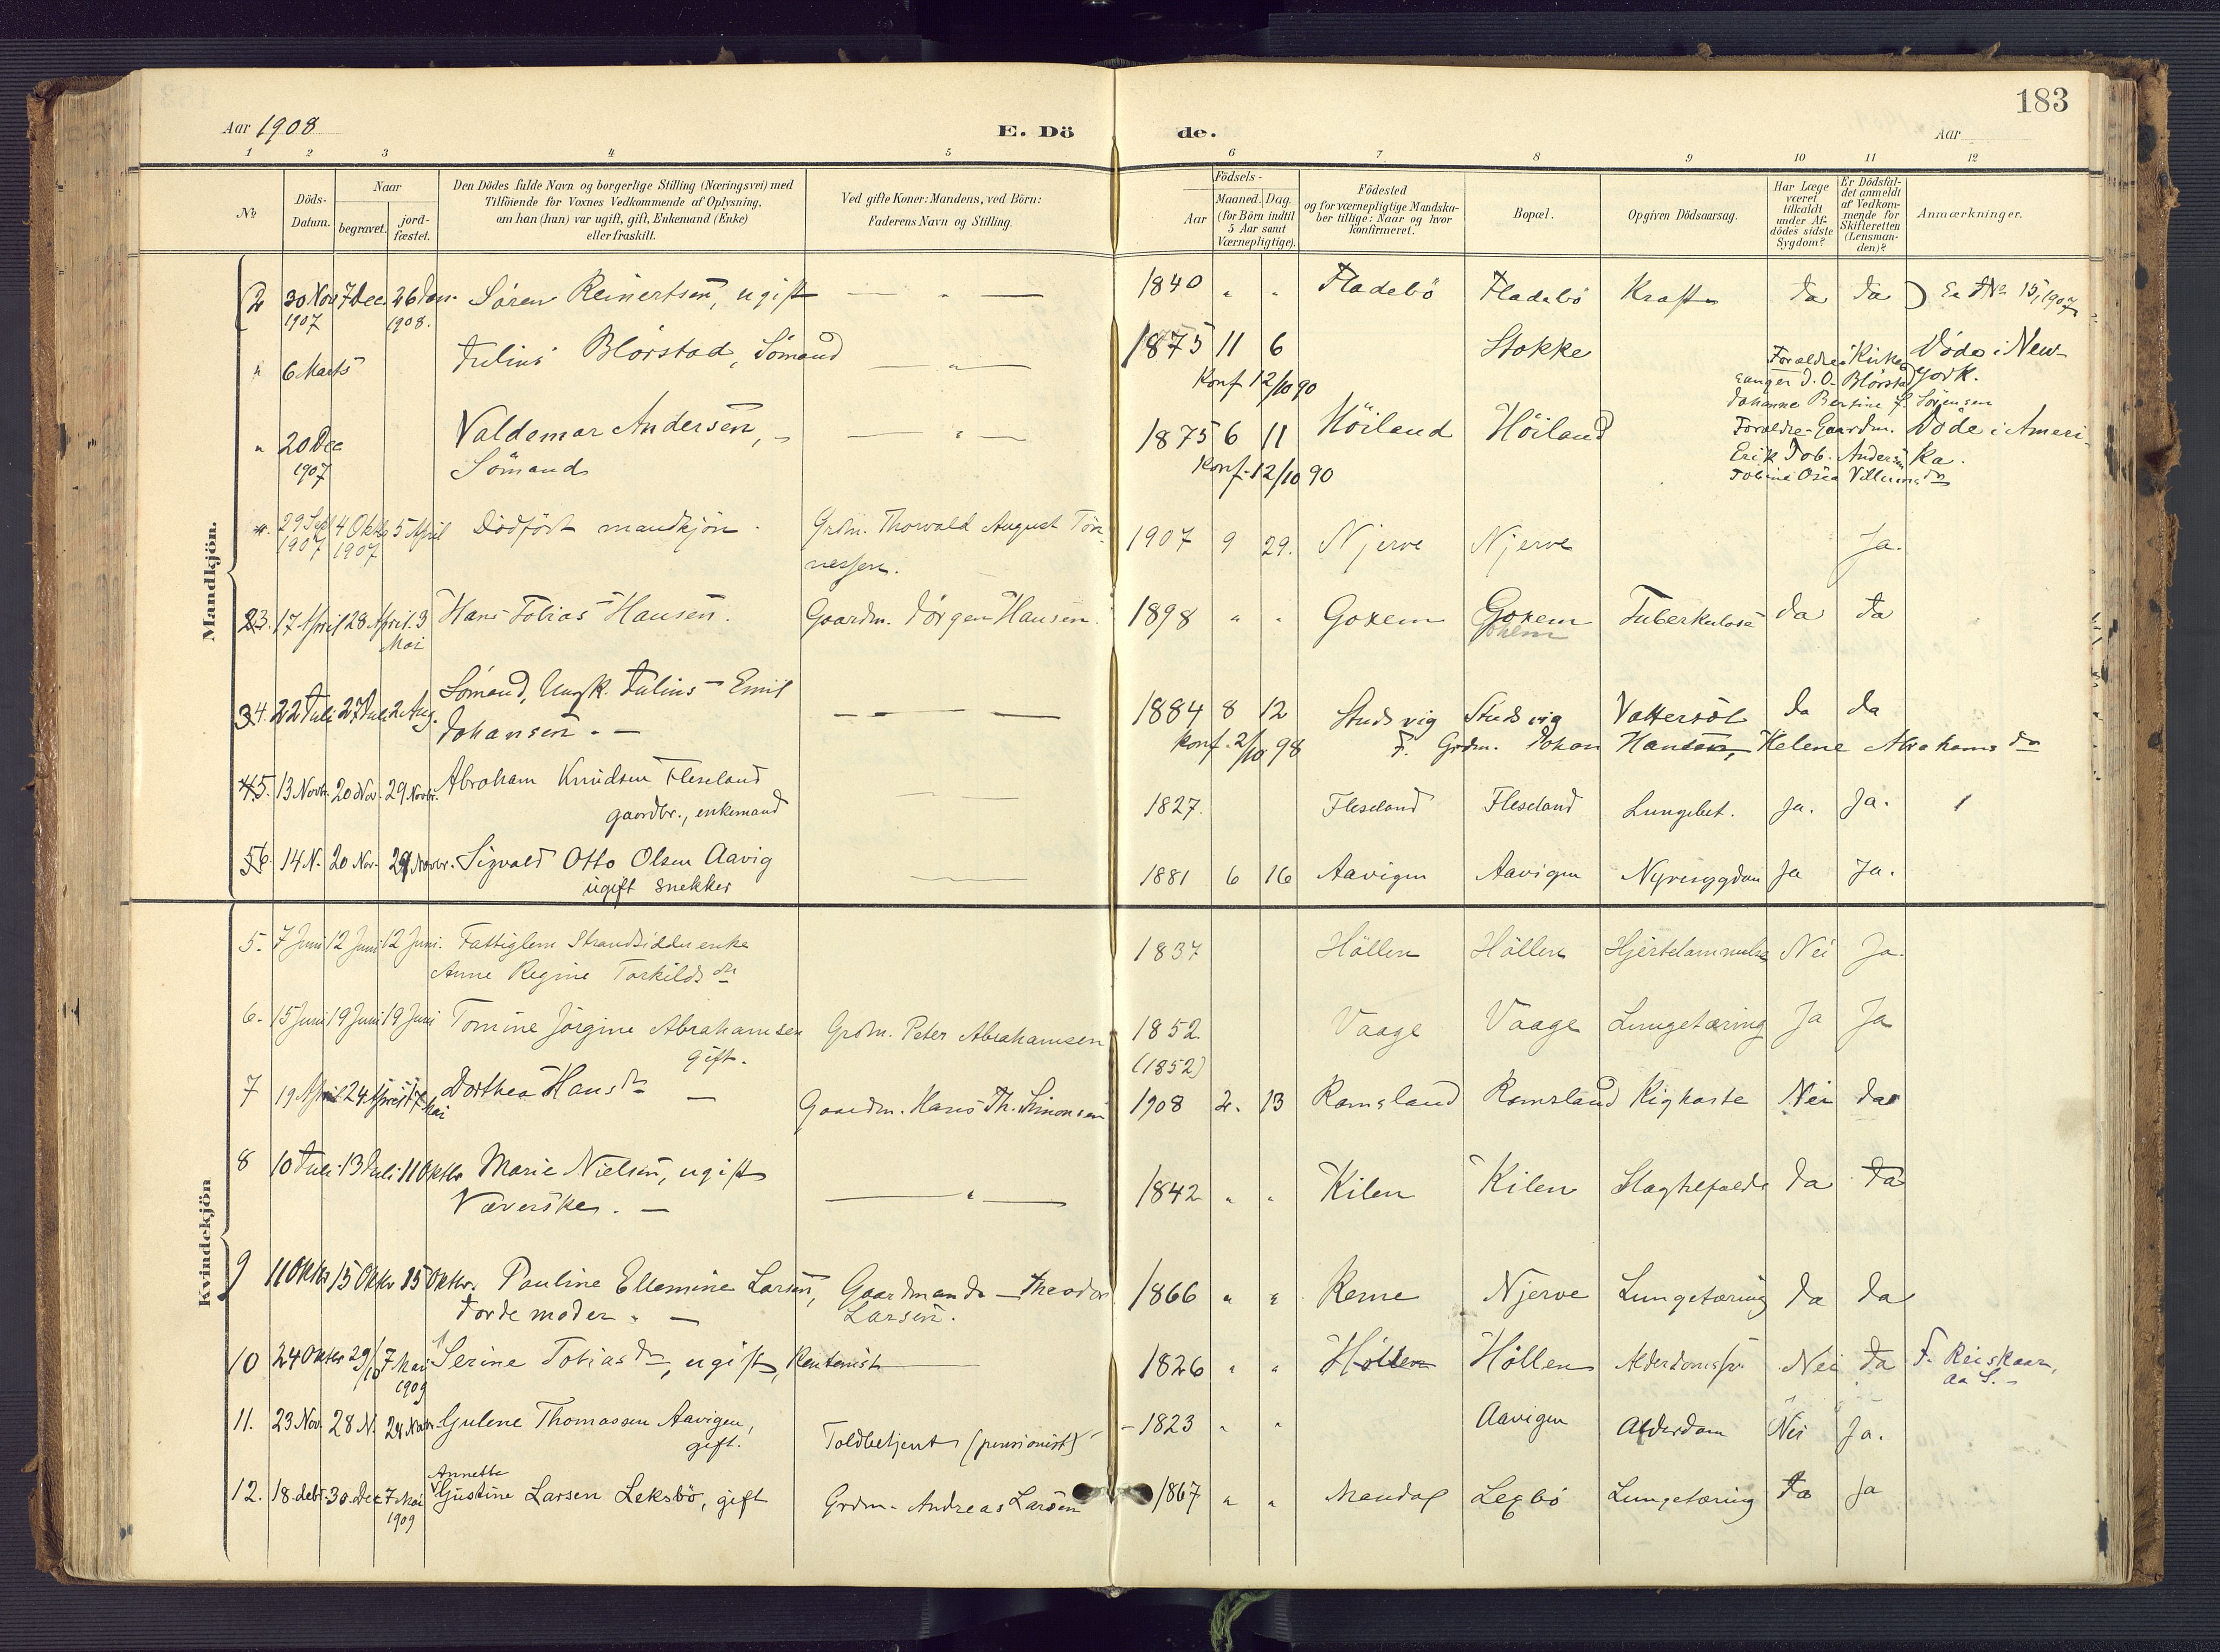 183
Aar 1908 E. Dö de. Aar
1 2 3 4 5 6 7 8 9 10 11 12
№ Döds-Datum. Naar begravet. jord-fæstet. Den Dödes fulde Navn og borgerlige Stilling (Næringsvei) med Tilföiende for Voxnes Vedkommende af Oplysning, om han (hun) var ugift, gift, Enkemand (Enke) eller fraskilt. Ved gifte Koner: Mandens, ved Börn: Faderens Navn og Stilling. Födsels- Aar Maaned. Dag. (for Börn indtil 5 Aar samt Værnepligtige). Födested og for værnepligtige Mandska-ber tillige: Naar og hvor konfirmeret. Bopæl. Opgiven Dödsaarsag. Har Læge været tilkaldt under Af-dödes sidste Sygdom? Er Dödsfal-det anmeldt af Vedkom-mende for Skifteretten (Lensman-den)? Anmærkninger.
Mandkjön.
2 30 Nov 7 Dec 26 Jan. Sören Reinertsen, ugift — " — 1840 " " Fladebö Fladebö Kræft Ja Ja № 15, 1907
1907 1908.
" 6 Marts Julius Blörstad, Sömand — " — 1875 11 6 Stokke Döde i New-
Konf. 12/10 90 Forældre: Kirkesanger J. O. Blörstad York.
Johanne Bertine f. Sörensen
" 20 Dec Valdemar Andersen, — " — 1875 6 11 Höiland Höiland Forældre - Gaardm. Döde i Ameri-
1907 Sömand Konf. 12/10 90 Erik Tob. Andersen ka.
Tobine Osea Villumsdn
29 Sept 4 Oktb 5 April Dödfödt mandkjön. Grdm. Thorvald August Tön- 1907 9 29. Njerve Njerve Ja.
1907 1907 nessen.
23. 17 April 28 April. 3 Mai Hans Tobias Hansen. Gaardm. Jörgen Hansen. 1898 " " Goxem Goxem Tuberkulose Ja Ja
34. 22 Juli 27 Juli 2 Aug. Sömand, Ungk. Julius Emil
Johansen. — — — 1884 8 12 Studsvig Studsvig Vattersöt Ja Ja
Konf. 2/10 98 F. Grdm. Johan Hansen, Helene Abrahamsdn
45. 13 Novb. 20 Nov. 29 Novbr. Abraham Knudsen Fleseland
gaardbr., enkemand — 1827. Fleseland Fleseland Lungebet. Ja. Ja.
56. 14 N. 20 Nov. 29 Novbr. Sigvald Otto Olsen Aavig
ugift snekker — 1881 6 16 Aavigen Aavigen Nyresygdom Ja Ja.
Kvindekjön
5. 7 Juni 12 Juni 12 Juni. Fattiglem Strandsidderenke
Anne Regine Torkildsdn 1837 Höllen Höllen Hjertelammelse Nei Ja.
6. 15 Juni 19 Juni 19 Juni Tomine Jörgine Abrahamsen Grdm. Peter Abrahamsen 1852. Vaage Vaage Lungetæring Ja Ja
gift. (1852)
7 19 April 24 April 17 Mai Dorthea Hansdn — Gaardm. Hans Th. Simonsen 1908 2. 13 Ramsland Ramsland Kighoste Nei Ja
8 10 Juli 13 Juli 11 Oktbr Marie Nielsen, ugift
Væverske. — — " — 1842 " " Kilen Kilen Slagtilfælde Ja Ja
9 11 Oktbr 15 Oktbr 15 Oktbr. Pauline Ellemine Larsen, Gaardmand — Theodor 1866 " " Kerne Njerve Lungetæring Ja Ja
Jordemoder. — Larsen.
10 24 Oktbr 29/10 7 Mai Serine Tobiasdn, ugift, Rentenist — 1826 " " Höllen Höllen Alderdomssv. Nei Ja F. Reiskaar,
1909 Aa S.
11. 23 Nov. 28 N. 29 Novbr. Gulene Thomassen Aavigen,
gift. Toldbetjent (pensionist) 1823 " " Aavigen Alderdom Nei Ja.
Annette
12. 18. debr. 30. Dec 7 Mai Gustine Larsen Leksbö, gift Grdm. Andreas Larsen 1867 " " Mandal Lexbö Lungetæring Ja Ja
1909